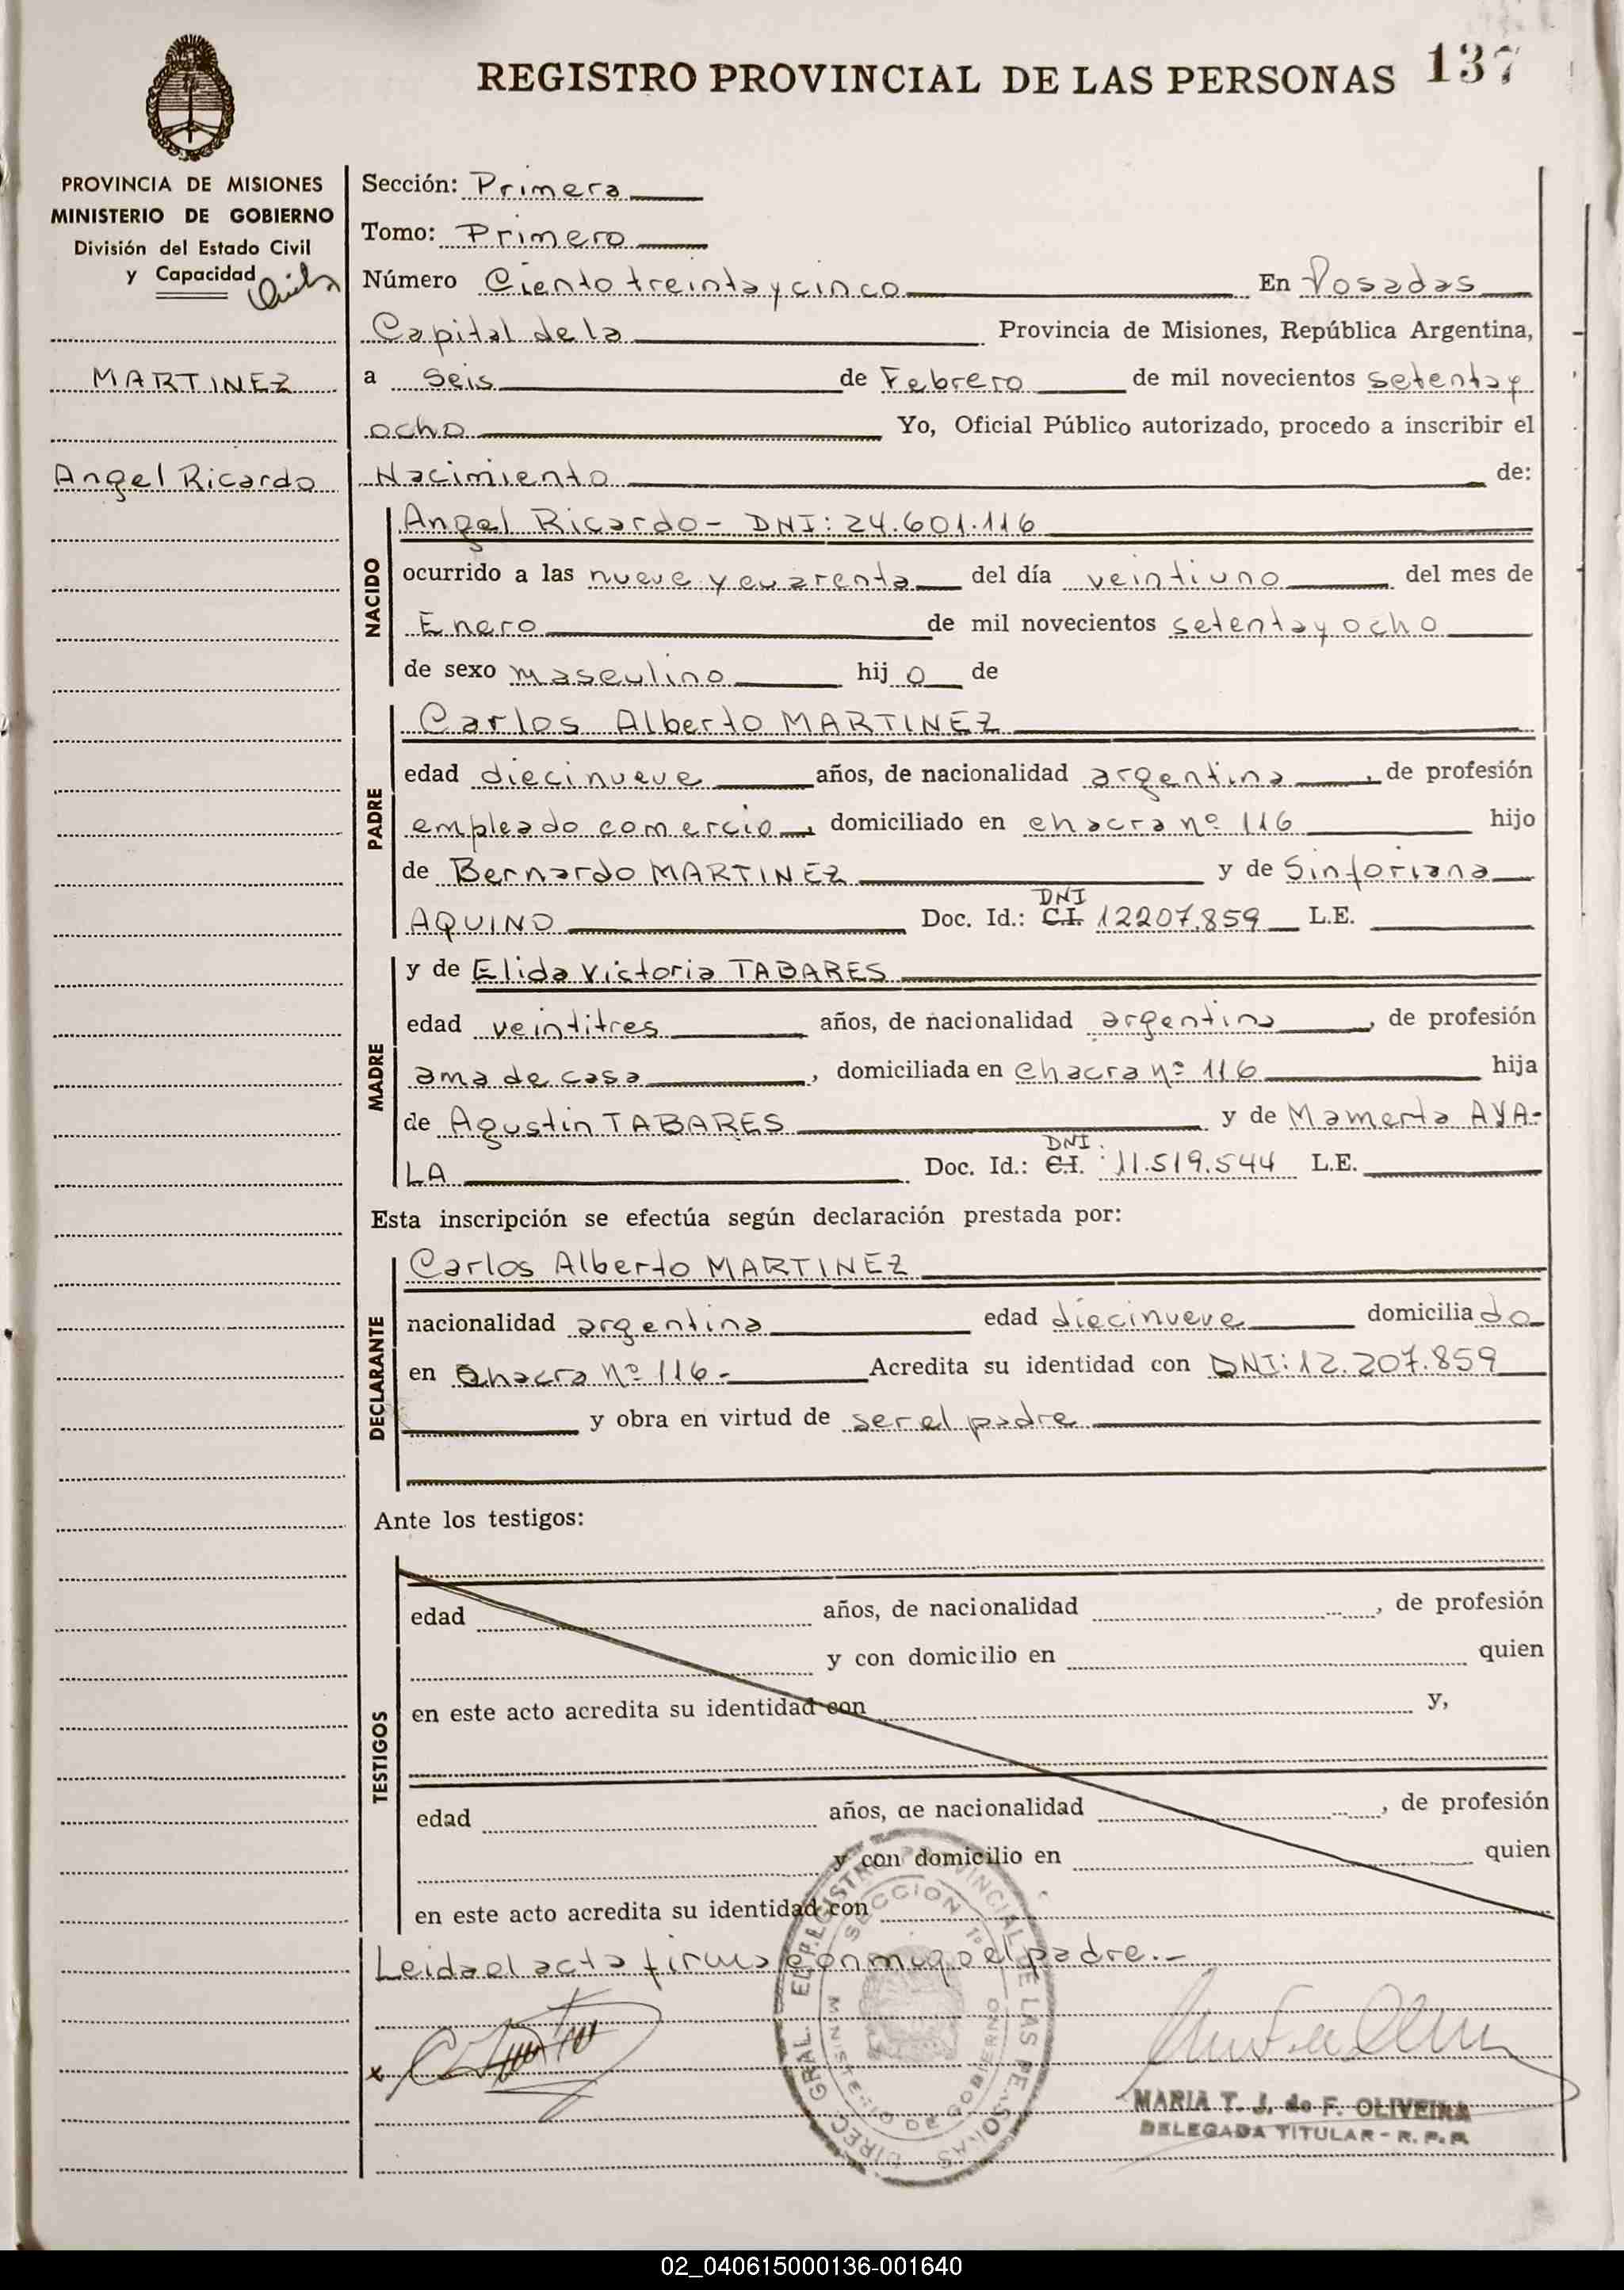 REGISTRO PROVINCIAL DE LAS PERSONAS 137
PROVINCIA DE MISIONES
MINISTERIO DE GOBIERNO
División del Estado Civil
y Capacidad
MARTINEZ
Angel Ricardo
Sección: Primera
Tomo: Primero
Número Ciento treinta y cinco En Posadas
Capital de la Provincia de Misiones, República Argentina,
a Seis de Febrero de mil novecientos setenta y
ocho Yo, Oficial Público autorizado, procedo a inscribir el
Nacimiento de:
NACIDO
Angel Ricardo - DNI: 24.601.116
ocurrido a las nueve y cuarenta del día veintiuno del mes de
Enero de mil novecientos setenta y ocho
de sexo masculino hij o de
PADRE
Carlos Alberto MARTINEZ
edad diecinueve años, de nacionalidad argentina, de profesión
empleado comercio, domiciliado en chacra nº 116 hijo
de Bernardo MARTINEZ y de Sinforiana
DNI
AQUINO Doc. Id.: C.I. 12207.859 L.E.
MADRE
y de Elida Victoria TABARES
edad veintitres años, de nacionalidad argentina, de profesión
ama de casa, domiciliada en chacra nº 116 hija
de Agustin TABARES y de Mamerta AYA-
DNI
LA Doc. Id.: C.I. 11.519.544 L.E.
Esta inscripción se efectúa según declaración prestada por:
DECLARANTE
Carlos Alberto MARTINEZ
nacionalidad argentina edad diecinueve domicilia do
en Chacra nº 116.- Acredita su identidad con DNI: 12.207.859
y obra en virtud de ser el padre
Ante los testigos:
TESTIGOS
edad años, de nacionalidad , de profesión
y con domicilio en quien
en este acto acredita su identidad con y,
edad años, de nacionalidad , de profesión
y con domicilio en quien
en este acto acredita su identidad con
Leida el acta firma conmigo el padre.-
DIREC. GRAL. DEL REGISTRO PROVINCIAL DE LAS PERSONAS
SECCION 1º
MINISTERIO DE GOBIERNO
MARIA T. J. de F. OLIVEIRA
DELEGADA TITULAR - R. P. P.
02_040615000136-001640